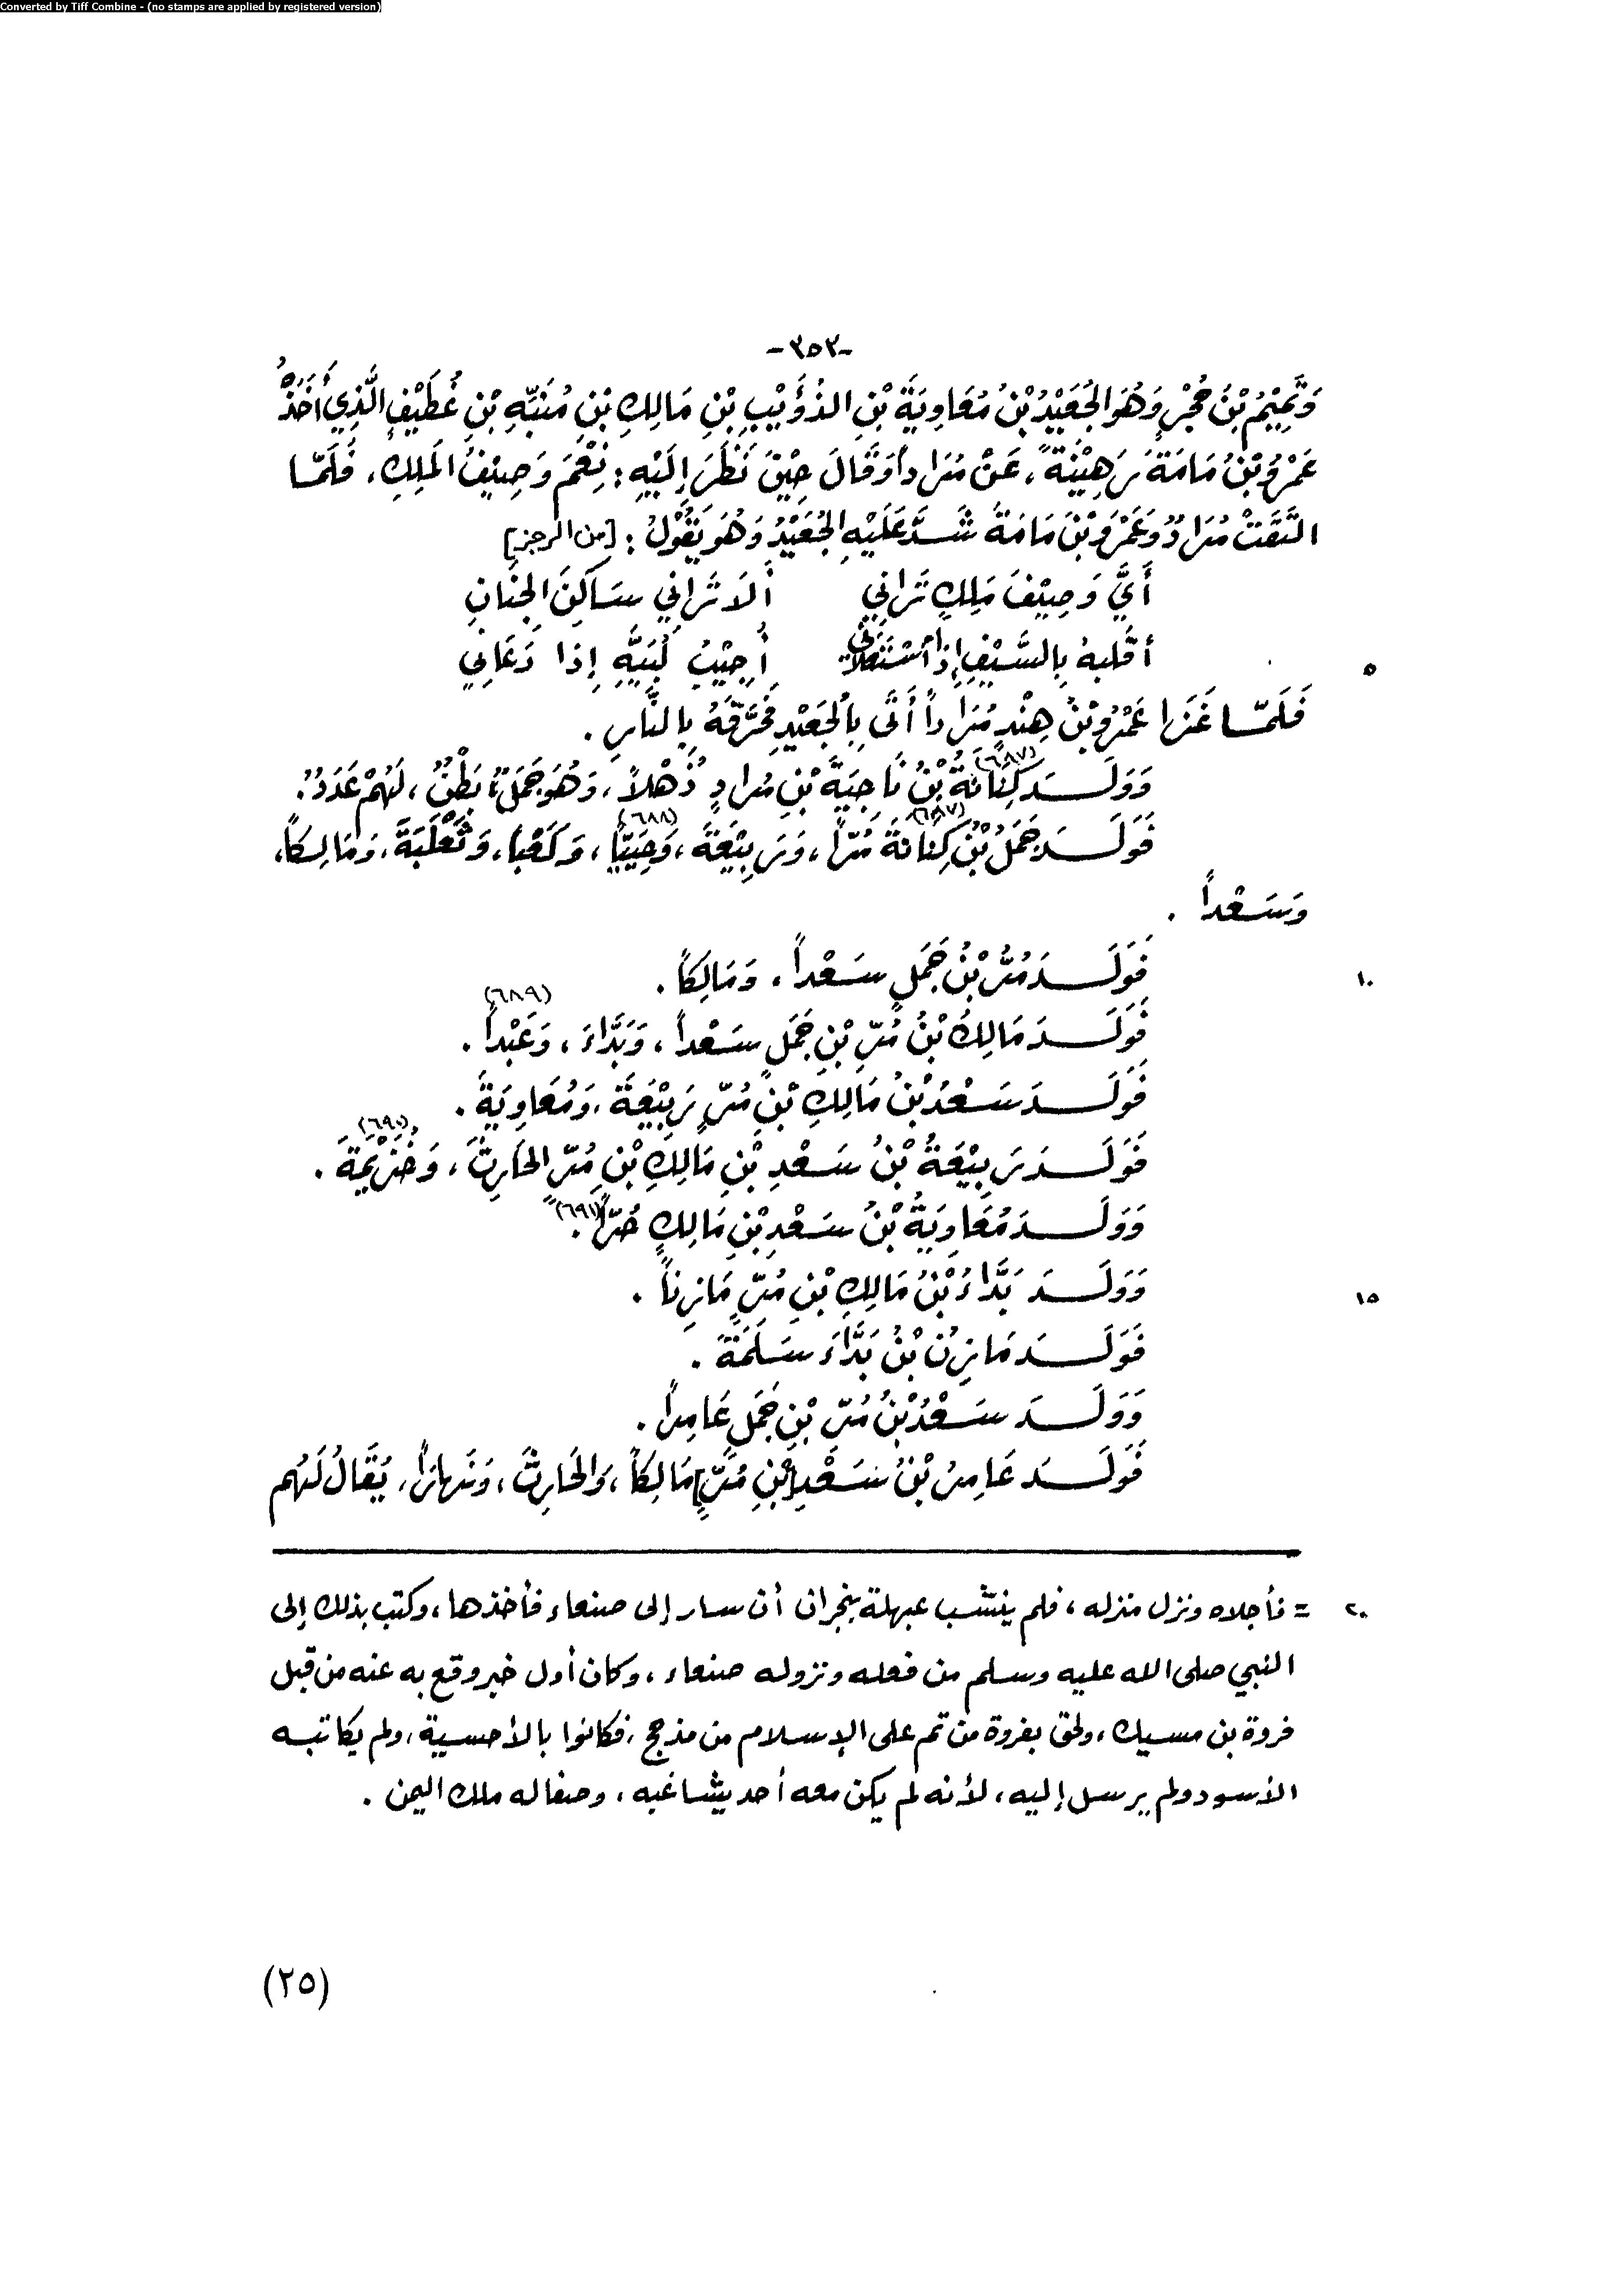 Converted by Tiff Combine - (no stamps are applied by registered version)
-٣٥٣-
وَتَمِيْمُ بْنُ حُجْرٍ وَهُوَ الجُعَيْدُ بْنُ مُعَاوِيَةَ بْنِ الذُؤَيْبِ بْنِ مَالِكِ بْنِ مُنَبِّهِ بْنِ غُطَيْفٍ الَّذِي أَخَذَهُ
عَمْرُو بْنُ مَامَةَ رَهِيْنَةً، عَنْ مُرَادٍ وَقَالَ حِيْنَ نَظَرَ إِلَيْهِ: نِعْمَ وَصِيْفُ المَلِكِ، فَلَمَّا
التَقَتْ مُرَادٌ وَعَمْرَو بْنَ مَامَةَ شَدَّ عَلَيْهِ الجُعَيْدُ وَهُوَ يَقُوْلُ: [من الرجز]
أَيَّ وَصِيْفَ مَلِكٍ تَرَانِي أَلَا تَرَانِي سَاكِنَ الجَنَانِ
٥ أقلبه بِالسَّيْفِ إِذَا اسْتَقْلَانِي أُجِيْبُ لَبَيْهِ إِذا دَعَانِي
فَلَمَّا غَزَا عَمْرُو بْنُ هِنْدٍ مُرَاداً أَتَى بِالجُعَيْدِ فَحَرَّقَهُ بِالنَّارِ.
وَوَلَدَ كِنَانَةُ بْنُ نَاجِيَةَ بْنِ مُرَادٍ ذُهْلاً، وَهُوَ جَمَلٌ (٦٨٧) بَطْنٌ، لَهُمْ عَدَدٌ.
فَوَلَدَ جَمَلُ بْنُ كِنَانَةَ (٦٨٧) مُرّاً، وَرَبِيْعَةَ، وَحُيَيّاً (٦٨٨)، وَكَعْباً، وَثَعْلَبَةَ، وَمَالِكاً،
وَسَعْداً.
١٠ فَوَلَدَ مُرُّ بْنُ جَمَلٍ سَعْداً، وَمَالِكاً.
فَوَلَدَ مَالِكُ بْنُ مُرِّ بْنِ جَمَلٍ سَعْداً، وَبَدَّاءَ، وَعَبْداً (٦٨٩).
فَوَلَدَ سَعْدُ بْنُ مَالِكِ بْنِ مُرٍّ رَبِيْعَةَ، وَمُعَاوِيَةَ.
فَوَلَدَ رَبِيْعَةُ بْنُ سَعْدِ بْنِ مَالِكِ بْنِ مُرّ الحَارِثَ، وَخُزَيْمَةَ (٦٩٠).
وَوَلَدَ مُعَاوِيَةُ بْنُ سَعْدِ بْنِ مَالِكٍ حُرّاً (٦٩١).
١٥ وَوَلَدَ بَدَّاءُ بْنُ مَالِكِ بْنِ مُرٍّ مَازِناً.
فَوَلَدَ مَازِنُ بْنُ بَدَّاءَ سَلَمَةَ.
وَوَلَدَ سَعْدُ بْنُ مُرِّ بْنِ جَمَلٍ عَامِراً.
فَوَلَدَ عَامِرُ بْنُ سَعْدِ [بْنِ مُرٍّ] مَالِكاً، وَالحَارِثَ، وَنَهَاراً، يُقَالُ لَهُم
٢٠ = فأجلاه ونزل منزله، فلم ينشب عبهلة بنجران أن سار إلى صنعاء فأخذها، وكتب بذلك إلى
النبي صلى الله عليه وسلم من فعله ونزوله صنعاء، وكان أول خبر وقع به عنه من قبل
فروة بن مسيك، ولحق بفروة من تم على الإسلام من مذحج، فكانوا بالأحسية، ولم يكاتبه
الأسود ولم يرسل إليه، لأنه لم يكن معه أحد يشاغبه، وصفا له ملك اليمن.
(٢٥)